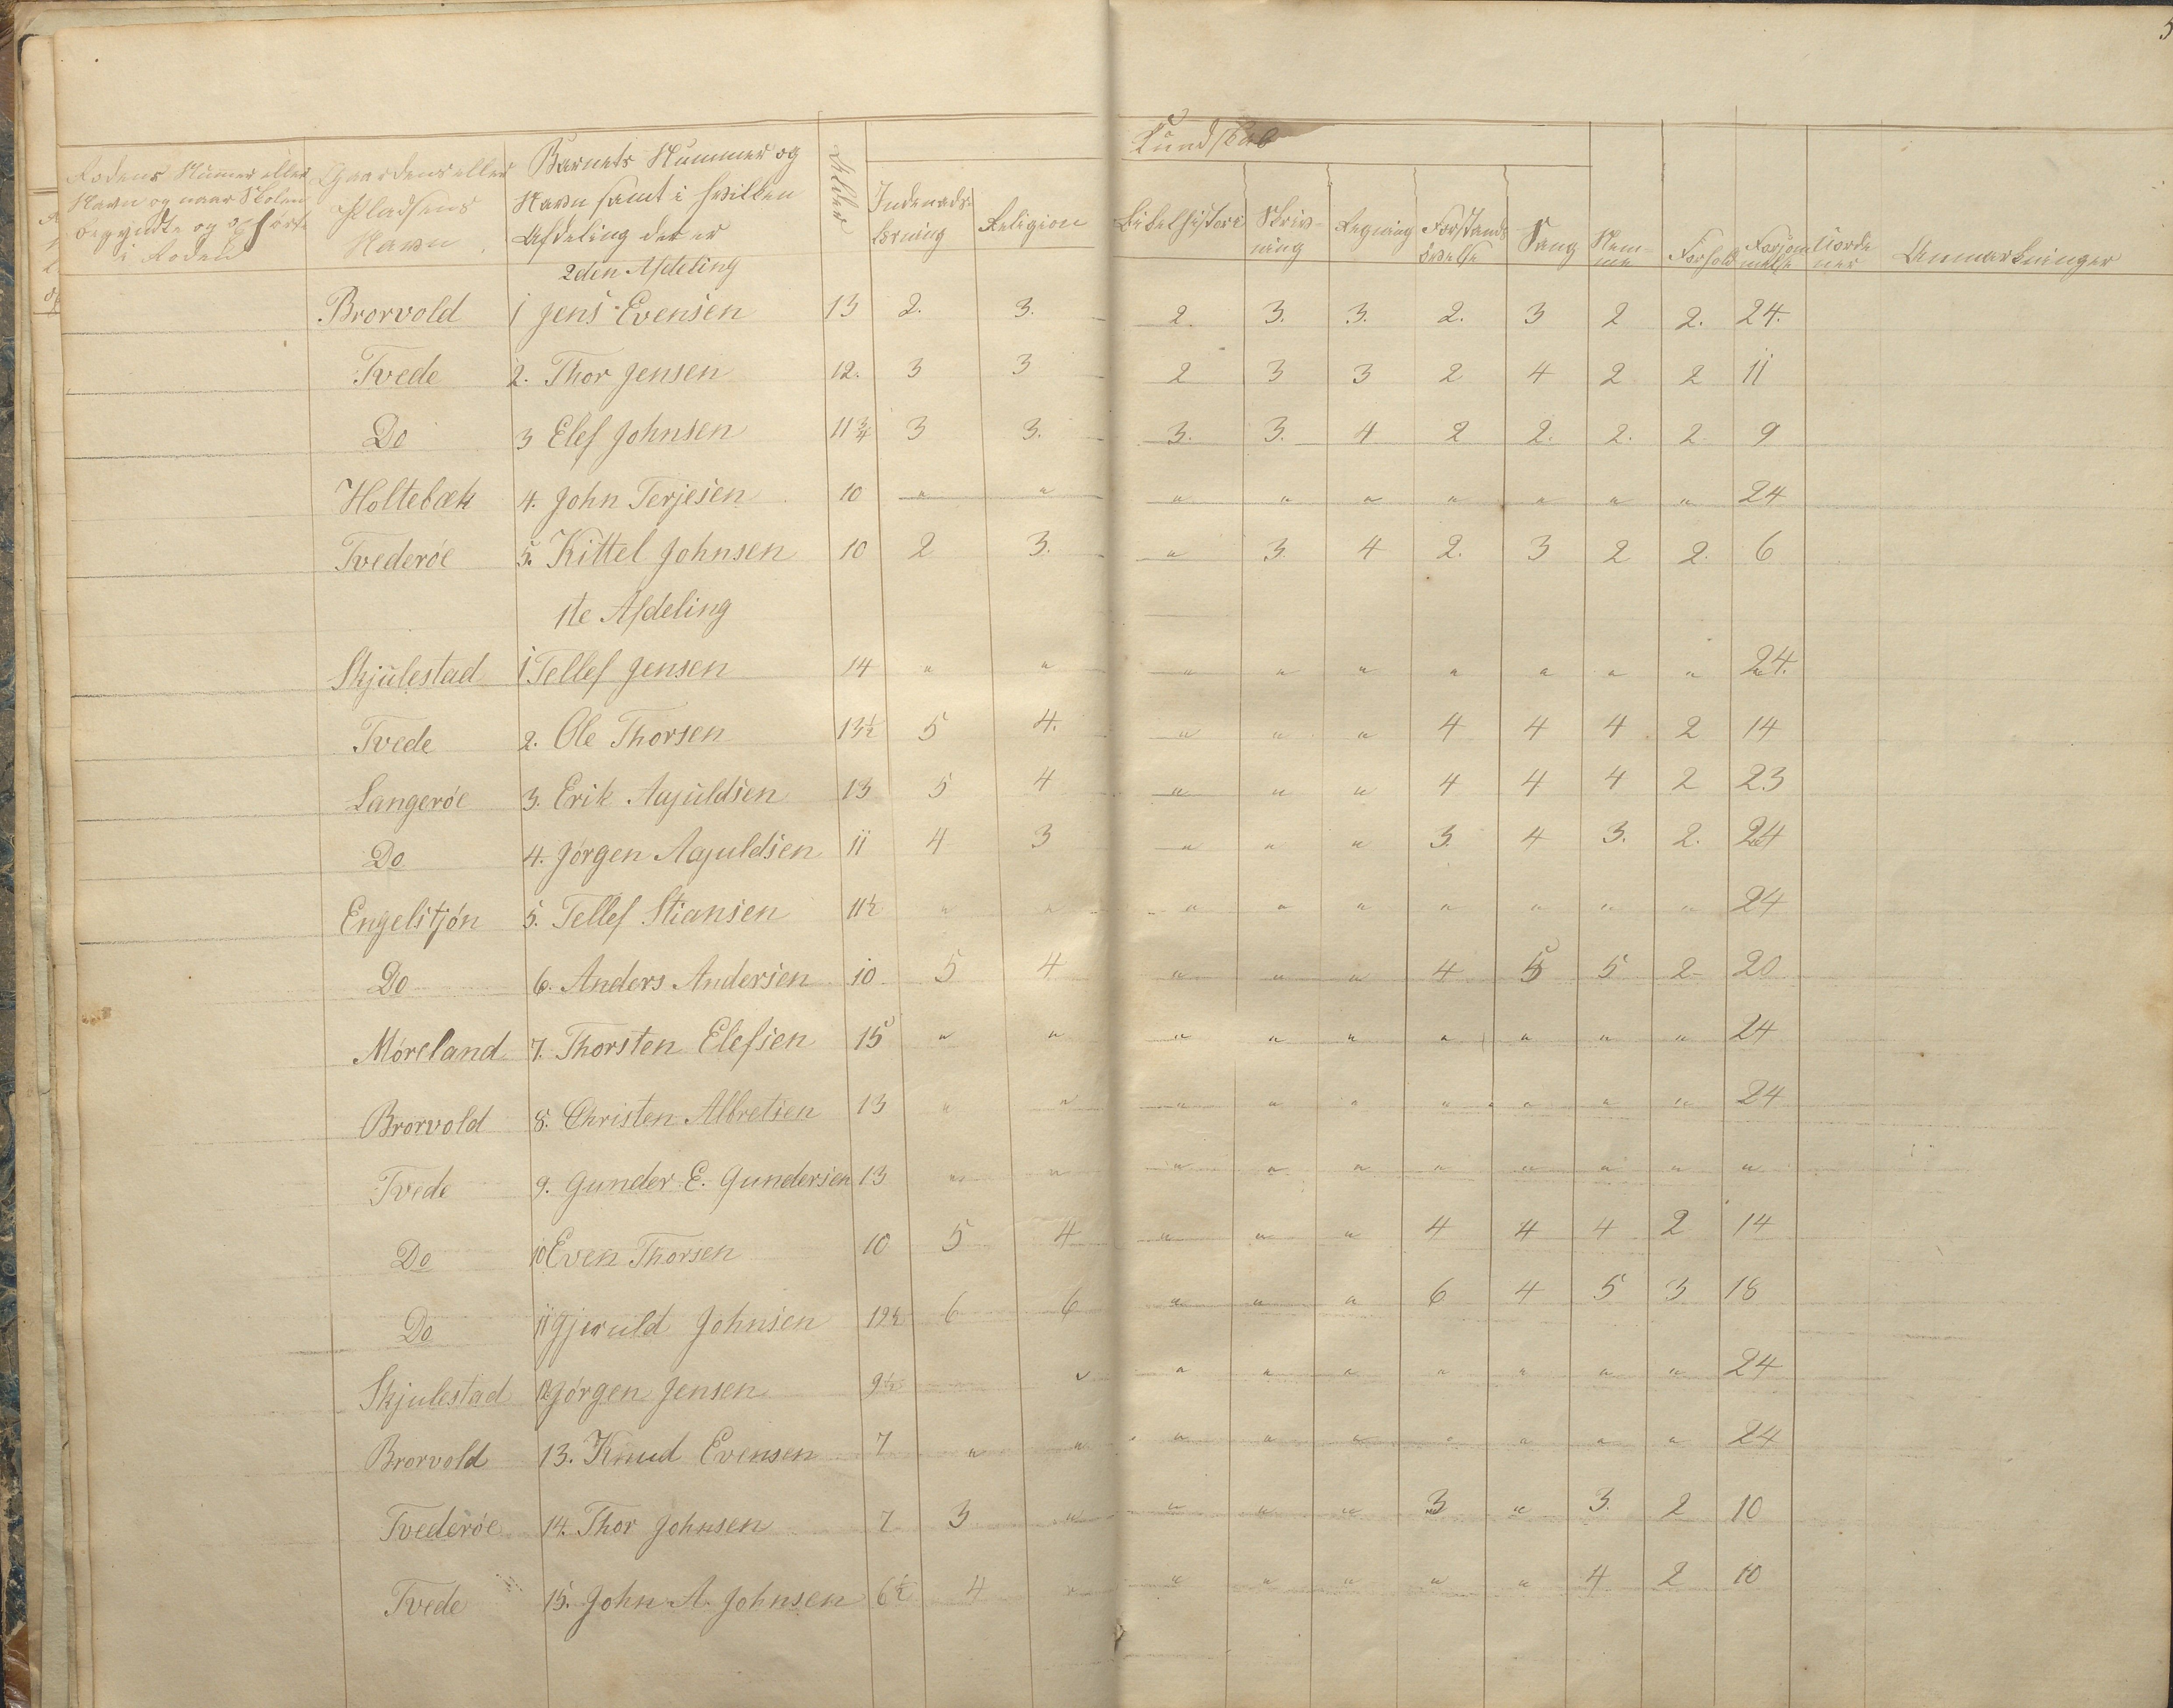 5
Kundskab
Rodens Numer eller Navn og naar Skolen begyndte og ophørte i Roden
Gaardens eller Pladsens Navn
Barnets Nummer og Navn samt i hvilken Afdeling det er
Alder
Indenads-læsning
Religion
Bibelhistorie
Skriv-ning
Regning
Forstands øvelse
Sang
Nem-me
Forhold
Forsøm melse
Anmærkninger
2den Afdeling
Brorvold 1 Jens Evensen 13 2. 3. 2. 3. 3. 2. 3 2 2. 24.
Tvede 2. Thor Jensen 12. 3 3 2 3 3 2 4 2 2 11
Do 3 Elef Johnsen 11 3/4 3 3. 3. 3. 4 2 2. 2. 2 9
Holtebæk 4. John Terjesen 10 " " " " " " " " " 24
Tvederøe 5. Kittel Johnsen 10 2 3. " 3. 4 2. 3 2 2. 6
1te Afdeling
Skjulestad 1 Tellef Jensen 14 " " " " " " " " " 24.
Tvede 2. Ole Thorsen 13 1/2 5 4. " " " 4 4 4 2 14
Langerøe 3. Erik Aajuldsen 13 5 4 " " " 4 4 4 2 23
Do 4. Jørgen Aajuldsen 11 4 3 " " " 3. 4 3. 2. 24
Engelstjøn 5. Tellef Stiansen 11 1/2 " " " " " " " " " 24
Do 6. Anders Andersen 10 5 4 " " " 4 5 5 2 20
Møreland 7. Thorsten Elefsen 15 " " " " " " " " " 24
Brorvold 8. Christen Albretsen 13 " " " " " " " " " 24
Tvede 9. Gunder E. Gundersen 13 " " " " " " " " " "
Do 10 Even Thorsen 10 5 4 " " " 4 4 4 2 14
Do 11 Gjeruld Johnsen 12 1/2 6 6 " " " 6 4 5 3 18
Skjulestad 12 Jørgen Jensen 9 1/2 " " " " " " " " 24
Brorvold 13. Knud Evensen 7 " " " " " " " " " 24
Tvederøe 14. Thor Johnsen 7 3 " " " " 3 " 3. 2 10
Tvede 15. John A. Johnsen 6 1/2 4 " " " " " " 4 2 10